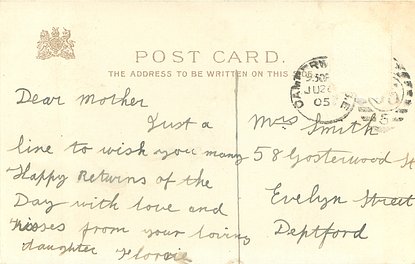 POST CARD.
THE ADDRESS TO BE WRITTEN ON THIS SIDE
CAMBERWE
9.30P
JU 2
05
Dear Mother
Just a
line to wish you many
Happy Returns of the
Day with love and
Kisses from your loving
daughter Florrie
Mrs Smith
58 Gosterwood St
Evelyn Street
Deptford